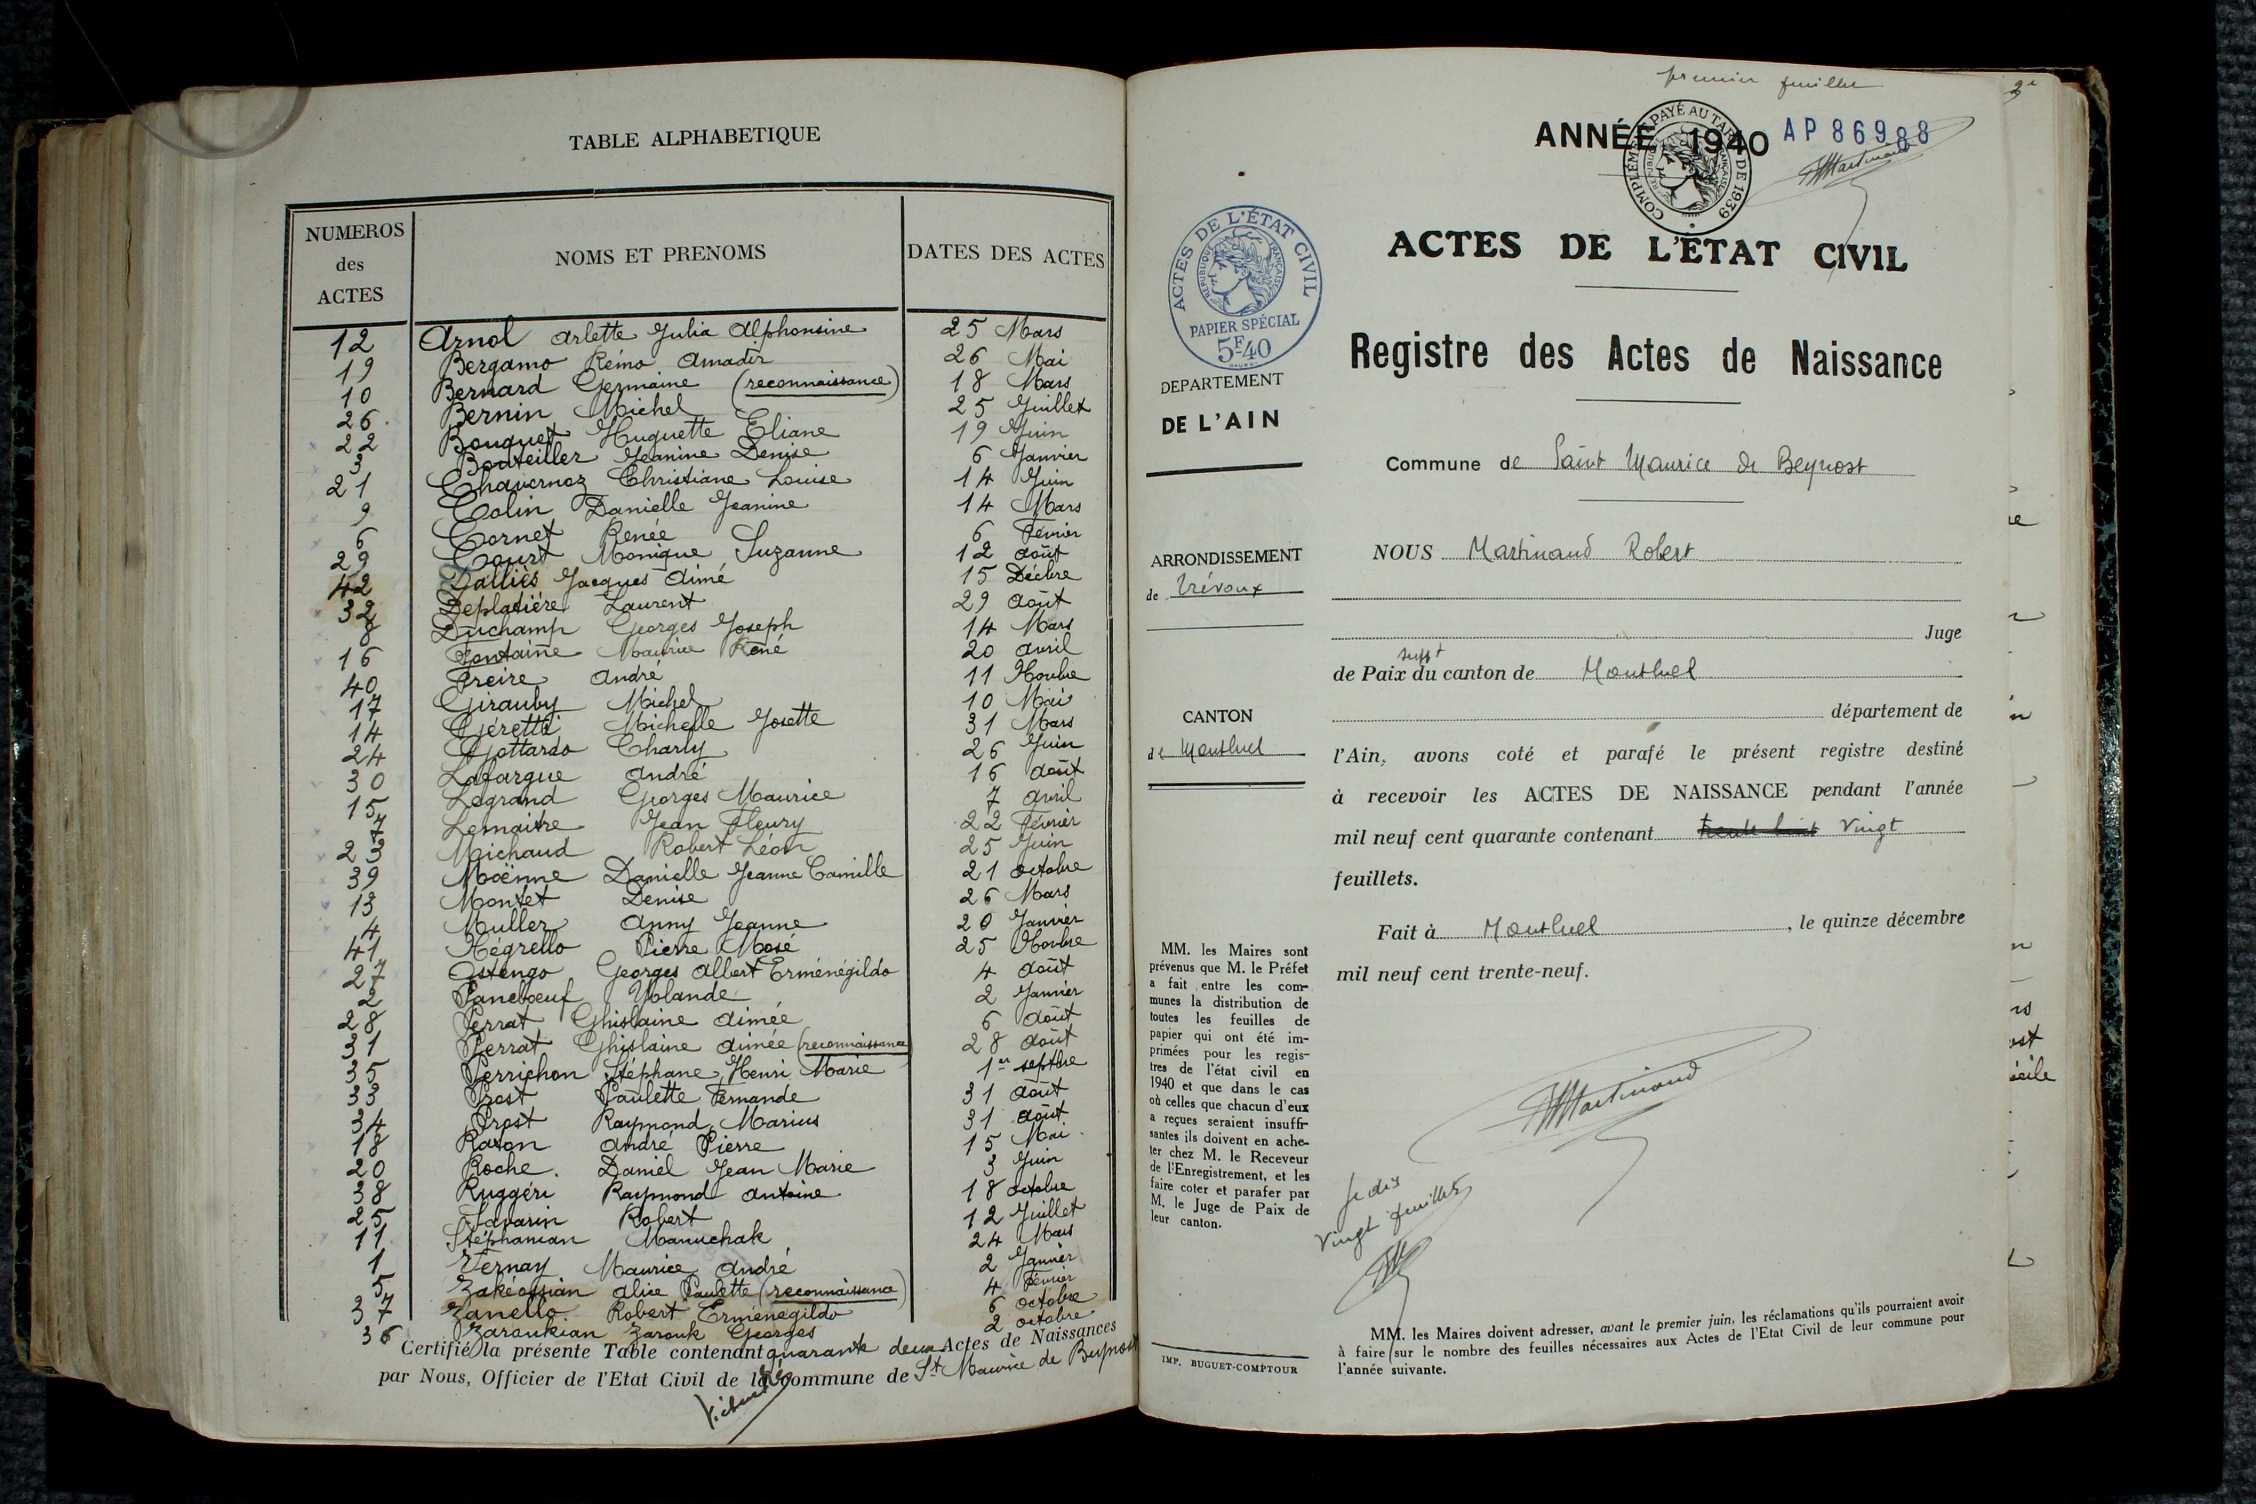 TABLE ALPHABETIQUE
NUMEROS des ACTES
NOMS ET PRENOMS
DATES DES ACTES
12 Arnol Arlette Julia Alphonsine 25 Mars
19 Bergamo Rémo Amadir 26 Mai
10 Bernard Germaine (reconnaissance) 18 Mars
26 Bernin Michel 25 Juillet
22 Bouquet Huguette Eliane 19 Juin
3 Bouteiller Jeanine Denise 6 Janvier
21 Chavernoz Christiane Louise 14 Juin
9 Colin Danielle Jeanine 14 Mars
6 Cornet Renée 6 Février
29 Court Monique Suzanne 12 août
42 Dalliès Jacques Aimé 15 Décbre
32 Deplatière Laurent 29 août
8 Duchamp Georges Joseph 14 Mars
16 Fontaine Maurice René 20 avril
40 Freire André 11 Novbre
17 Girauby Michel 10 Mai
14 Géretti Michelle Josette 31 Mars
24 Gottardo Charly 26 Juin
30 Lafargue André 16 août
15 Legrand Georges Maurice 7 avril
7 Lemaitre Jean Fleury 22 Février
23 Michaud Robert Léon 25 Juin
39 Moënne Danielle Jeanne Camille 21 octobre
13 Montet Denise 26 Mars
4 Muller Anny Jeanne 20 Janvier
41 Négrello Pierre Mosé 25 Novbre
27 Ostengo Georges Albert Erménégildo 4 août
2 Paneboeuf Yolande 2 Janvier
28 Perrat Ghislaine Aimée 6 août
31 Perrat Ghislaine Aimée (reconnaissance) 28 août
35 Perrichon Stéphane Henri Marie 1er septbre
33 Prost Paulette Fernande 31 août
34 Prost Raymond Marius 31 août
18 Raton André Pierre 15 Mai
20 Roche Daniel Jean Marie 3 Juin
38 Ruggéri Raymond Antoine 18 octobre
25 Savarin Robert 12 Juillet
11 Stéphanian Manuchak 24 Mars
1 Vernay Maurice André 2 Janvier
5 Zakéossian Alice Paulette (reconnaissance) 4 Février
37 Zanello Robert Erménégildo 6 octobre
36 Zaroukian Zarouk Georges 2 octobre
Certifié la présente Table contenant quarante deux Actes de Naissances
par Nous, Officier de l'Etat Civil de la commune de St Maurice de Beynost
premier feuillet
ANNÉE 1940 AP 86988
COMPLÉMENT PAYÉ AU TARIF DE 1939
RÉPUBLIQUE FRANÇAISE
Martinand
ACTES DE L'ÉTAT CIVIL
RÉPUBLIQUE FRANÇAISE
PAPIER SPÉCIAL
5F40
ACTES DE L'ÉTAT CIVIL
Registre des Actes de Naissance
DEPARTEMENT
DE L'AIN
Commune de Saint Maurice de Beynost
ARRONDISSEMENT
de Trévoux
CANTON
de Montluel
NOUS Martinand Robert
Juge
suppt
de Paix du canton de Montluel
département de
l'Ain, avons coté et parafé le présent registre destiné
à recevoir les ACTES DE NAISSANCE pendant l'année
mil neuf cent quarante contenant trente huit Vingt
feuillets.
Fait à Montluel, le quinze décembre
mil neuf cent trente-neuf.
Martinand
Je dis
Vingt feuillets
MM. les Maires sont
prévenus que M. le Préfet
a fait entre les com-
munes la distribution de
toutes les feuilles de
papier qui ont été im-
primées pour les regis-
tres de l'état civil en
1940 et que dans le cas
où celles que chacun d'eux
a reçues seraient insuffi-
santes ils doivent en ache-
ter chez M. le Receveur
de l'Enregistrement, et les
faire coter et parafer par
M. le Juge de Paix de
leur canton.
IMP. BUGUET-COMPTOUR
MM. les Maires doivent adresser, avant le premier juin, les réclamations qu'ils pourraient avoir
à faire sur le nombre des feuilles nécessaires aux Actes de l'Etat Civil de leur commune pour
l'année suivante.